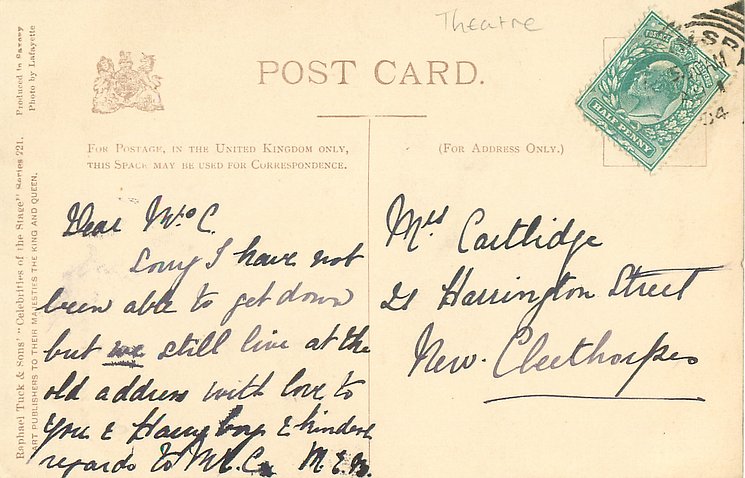 Theatre
POST CARD.
FOR POSTAGE, IN THE UNITED KINGDOM ONLY,
THIS SPACE MAY BE USED FOR CORRESPONDENCE.
(FOR ADDRESS ONLY.)
Raphael Tuck & Sons' "Celebrities of the Stage" Series 221.
ART PUBLISHERS TO THEIR MAJESTIES THE KING AND QUEEN.
Produced in Saxony
Photo by Lafayette
POSTAGE
HALF PENNY
04
Dear Mrs C.
Sorry I have not
been able to get down
but we still live at the
old address with love to
you & Harry boy & kindest
regards to Mr. C. M.E.B.
Mrs Cartlidge
21 Harrington Street
New. Cleethorpes